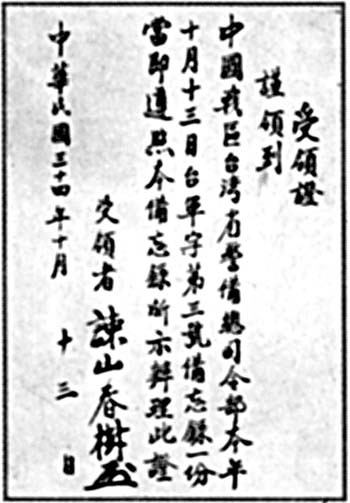 受領證
謹領到
中國戰區台湾省警備總司令部本年
十月十三日台軍字第三號備忘錄一份
當即遵照本備忘錄所示辦理此證
受領者 諫山春樹
中華民國三十四年十月十三日